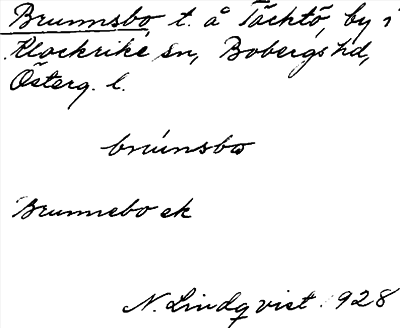 Brunnsbo, t. å Täcktö, by i
Klockrike sn, Bobergs hd,
Österg. l.
brúnsbo
Brunnebo ek
N. Lindqvist 1928